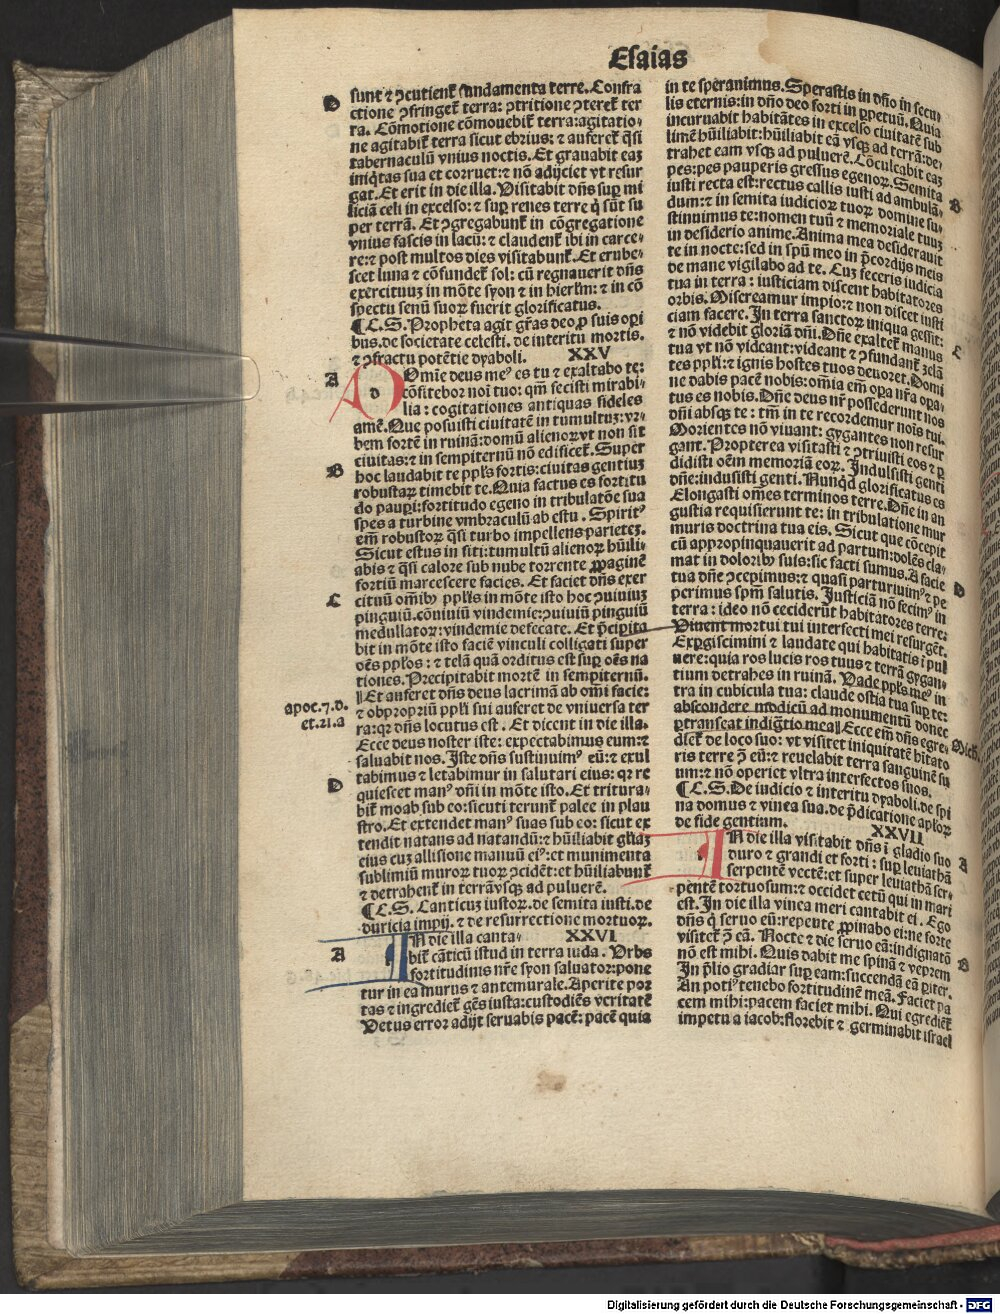 Esaias
D
sunt ⁊ ꝯcutient᷑ fundamenta terre. Confra
ctione ꝯfringet᷑ terra: ꝯtritione ꝯteret᷑ ter
ra. Cōmotione cōmouebit᷑ terra: agitatio-
ne agitabit᷑ terra sicut ebrius: ⁊ auferet᷑ q̄si
tabernaculū vnius noctis. Et grauabit eaꝫ
iniq̇tas sua et corruet: ⁊ nō adijciet vt resur
gat. Et erit in die illa. Visitabit dn̄s suꝑ mi
liciā celi in excelso: ⁊ suꝑ reges terre q̇ sūt su
per terrā. Et ꝯgregabunt᷑ in cōgregatione
vnius fascis in lacū: ⁊ claudent᷑ ibi in carce-
re: ⁊ post multos dies visitabunt᷑. Et erube-
scet luna ⁊ cōfundet᷑ sol: cū regnauerit dn̄s
exercituuꝫ in mōte syon ⁊ in hierl̄m: ⁊ in cō
spectu senū suoꝝ fuerit glorificatus.
¶ C.S. Propheta agit gr̄as deo ꝓ suis oꝑi
bus. de societate celesti. de interitu mortis.
⁊ ꝯfractu potētie dyaboli. XXV
A
D Omīe deus meꝰ es tu ⁊ exaltabo te:
cōfitebor noī tuo: qm̄ fecisti mirabi-
lia: cogitationes antiquas fideles
amē. Que posuisti ciuitatē in tumultuꝫ: vr-
bem fortē in ruinā: domū alienoꝝ vt non sit
ciuitas: ⁊ in sempiternū nō edificet᷑. Super
B
hoc laudabit te ppl̄s fortis: ciuitas gentiuꝫ
robustaꝝ timebit te. Quia factus es fortitu
do pauꝑi: fortitudo egeno in tribulatōe sua
spes a turbine vmbraculū ab estu. Spiritꝰ
em̄ robustoꝝ q̄si turbo impellens parieteꝫ.
Sicut estus in siti: tumultū alienoꝝ hūili-
abis ⁊ q̄si calore sub nube torrente ꝓpaginē
fortiū marcescere facies. Et faciet dn̄s exer
C
cituū om̄ibꝰ ppl̄is in mōte isto hoc ꝯuiuiuꝫ
pinguiū. cōuiuiū vindemie: ꝯuiuiū pinguiū
medullatoꝝ: vindemie defecate. Et p̄cipita
bit in mōte isto faciē vinculi colligati super
oēs ppl̄os: ⁊ telā quā orditus est suꝑ oēs na
tiones. Precipitabit mortē in sempiternū.
Et auferet dn̄s deus lacrimā ab om̄i facie:
apoc.7.d.
et.21.a
⁊ obpropriū ppl̄i sui auferet de vniuersa ter
ra: qꝛ dn̄s locutus est. Et dicent in die illa.
Ecce deus noster iste: expectabimus eum: ⁊
saluabit nos. Iste dn̄s sustinuimꝰ eū: ⁊ exul
tabimus ⁊ letabimur in salutari eius: qꝛ re
D
quiescet manꝰ dn̄i in mōte isto. Et tritura-
bit᷑ moab sub eo: sicuti terunt᷑ palee in plau
stro. Et extendet manꝰ suas sub eo: sicut ex
tendit natans ad natandū: ⁊ hūiliabit gl̄iaꝫ
eius cuꝫ allisione manuū eiꝰ: et munimenta
sublimiū muroꝝ tuoꝝ ꝯcidēt: et hūiliabunt᷑
⁊ detrahent᷑ in terrā vsqꝫ ad puluerē.
¶ C.S. Canticuꝫ iustoꝝ. de semita iusti. de
duricia impij. ⁊ de resurrectione mortuoꝝ.
A
I N die illa canta- XXVI
bit᷑ cāticū istud in terra iuda. Vrbs
fortitudinis nr̄e syon saluator: pone
tur in ea murus ⁊ antemurale. Aperite por
tas ⁊ ingrediet᷑ gēs iusta: custodiēs veritatē
Vetus error adijt seruabis pacē: pacē quia
in te sperauimus. Sperastis in dn̄o in secu-
lis eternis: in dn̄o deo forti in ꝑpetuū. Quia
incuruabit habitātes in excelso ciuitatē sub
limē hūiliabit: hūiliabit eā vsqꝫ ad terrā: de-
trahet eam vsqꝫ ad puluerē. Cōculcabit eaꝫ
pes: pes pauperis gressus egenoꝝ. Semita
B
iusti recta est: rectus callis iusti ad ambulā-
dum: ⁊ in semita iudicioꝝ tuoꝝ domine su-
stinuimus te: nomen tuū ⁊ memoriale tuuꝫ
in desiderio anime. Anima mea desiderauit
te in nocte: sed in spū meo in p̄cordijs meis
de mane vigilabo ad te. Cuꝫ feceris iudicia
tua in terra: iusticiam discent habitatores
orbis. Misereamur impio: ⁊ non discet iusti
ciam facere. In terra sanctoꝝ iniqua gessit:
C
⁊ nō videbit gloriā dn̄i. Dn̄e exaltet᷑ manus
tua vt nō videant: videant ⁊ ꝯfundant᷑ zelā
tes ppl̄i: ⁊ ignis hostes tuos deuoret. Domi
ne dabis pacē nobis: om̄ia em̄ oꝑa nr̄a oꝑa-
tus es nobis. Dn̄e deus nr̄ possederunt nos
dn̄i absqꝫ te: tm̄ in te recordemur nois tui.
Morientes nō viuant: gygantes non resur
gant. Propterea visitasti ⁊ ꝯtriuisti eos ⁊ ꝑ
didisti oēm memoriā eoꝝ. Indulsisti genti
dn̄e: indulsisti genti. Nunq̇d glorificatus es
Elongasti om̄es terminos terre. Dn̄e in an
gustia requisierunt te: in tribulatione mur
muris doctrina tua eis. Sicut que cōcepit
cū appropinquauerit ad partum: dolēs cla-
mat in doloribꝰ suis: sic facti sumus. A facie
D
tua dn̄e ꝯcepimus: ⁊ quasi parturiuimꝰ ⁊ pe
perimus spm̄ salutis. Iusticiā nō fecimꝰ in
terra: ideo nō ceciderūt habitatores terre:
Viuent mortui tui interfecti mei resurgēt.
Expgiscimini ⁊ laudate qui habitatis ī pul
uere: quia ros lucis ros tuus ⁊ terrā gygan-
tium detrahes in ruinā. Vade ppl̄s meꝰ in
tra in cubicula tua: claude ostia tua suꝑ te:
abscondere modicū ad monumentū donec
ꝑtranseat indig̃tio mea. Ecce em̄ dn̄s egre-
Mich.
diet᷑ de loco suo: vt visitet iniquitatē bitato
ris terre ꝯ eū: ⁊ reuelabit terra sanguinē su
um: ⁊ nō operiet vltra interfectos suos.
¶ C.S. De iudicio ⁊ interitu dyaboli. de spi
na domus ⁊ vinea sua. de p̄dicatione apl̄oꝝ
de fide gentium. XXVII
A
I N die illa visitabit dn̄s ī gladio suo
duro ⁊ grandi et forti: suꝑ leuiathā
serpentē vectē: et super leuiathā ser-
pentē tortuosum: ⁊ occidet cetū qui in mari
est. In die illa vinea meri cantabit ei. Ego
dn̄s q̇ seruo eū: repente ꝓpinabo ei: ne forte
visitet᷑ ꝯ eā. Nocte ⁊ die seruo eā: indignatō
B
nō est mihi. Quis dabit me spinā ⁊ veprem
In p̄lio gradiar suꝑ eam: succendā eā ꝑiter.
An potiꝰ tenebo fortitudinē meā. Faciet pa
cem mihi: pacem faciet mihi. Qui egrediēt᷑
impetu a iacob: florebit ⁊ germinabit israel
Digitalisierung gefördert durch die Deutsche Forschungsgemeinschaft - DFG